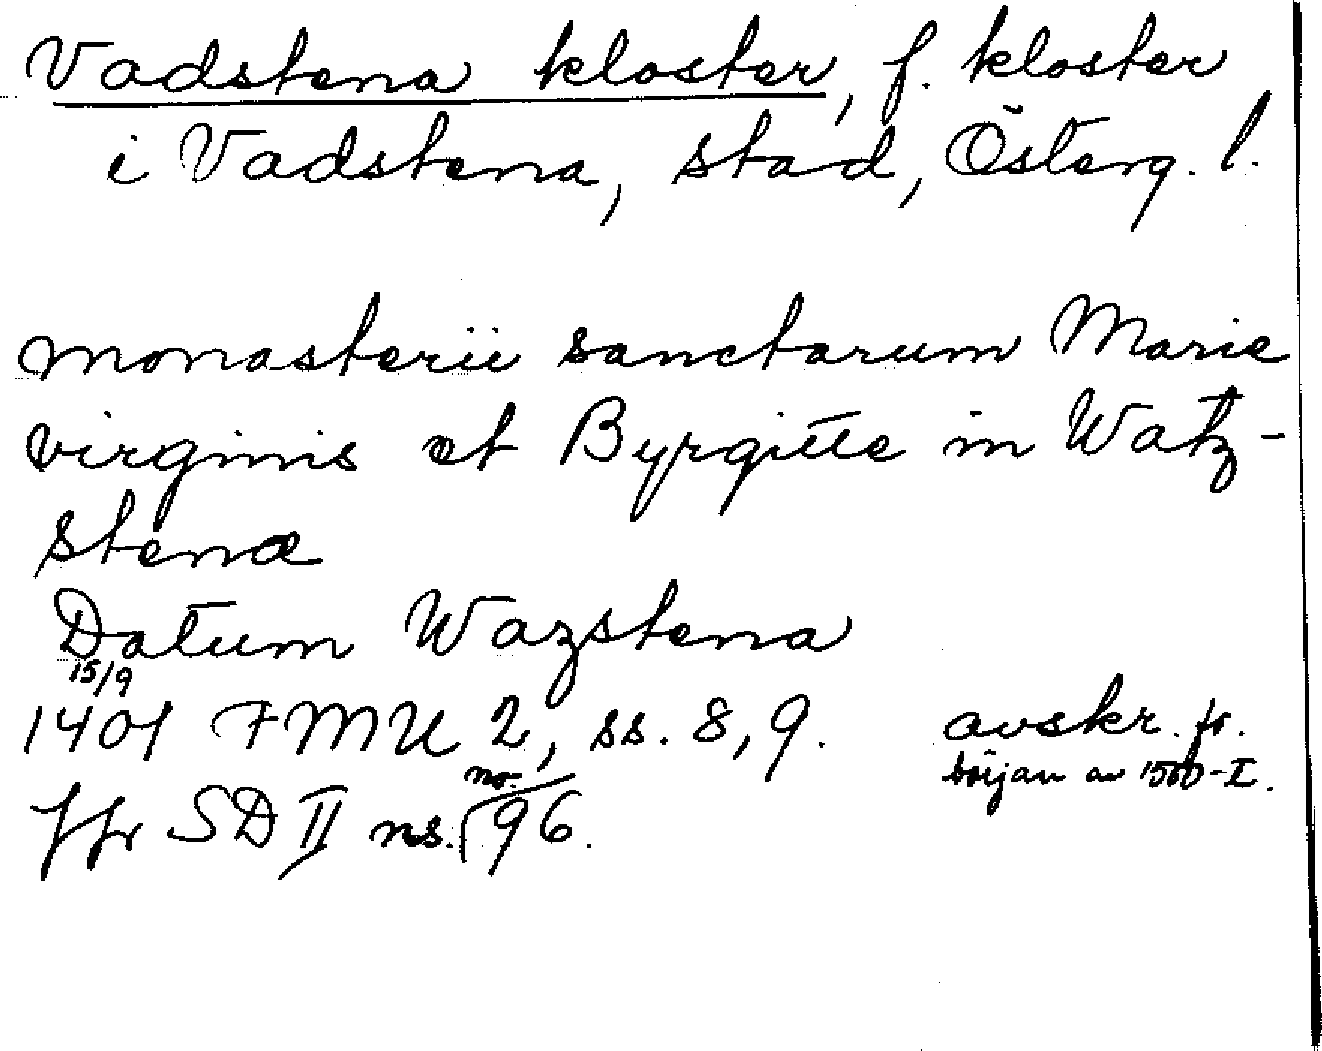 Vadstena kloster, f. kloster
i Vadstena, stad, Österg. l.
monasterii sanctarum Marie
virginis et Byrgitte in Watz-
stena
Datum Wazstena
15/9
1401 FMU 2, ss. 8, 9. avskr. fr.
början av 1500-t.
Jfr SD II ns. no 96.